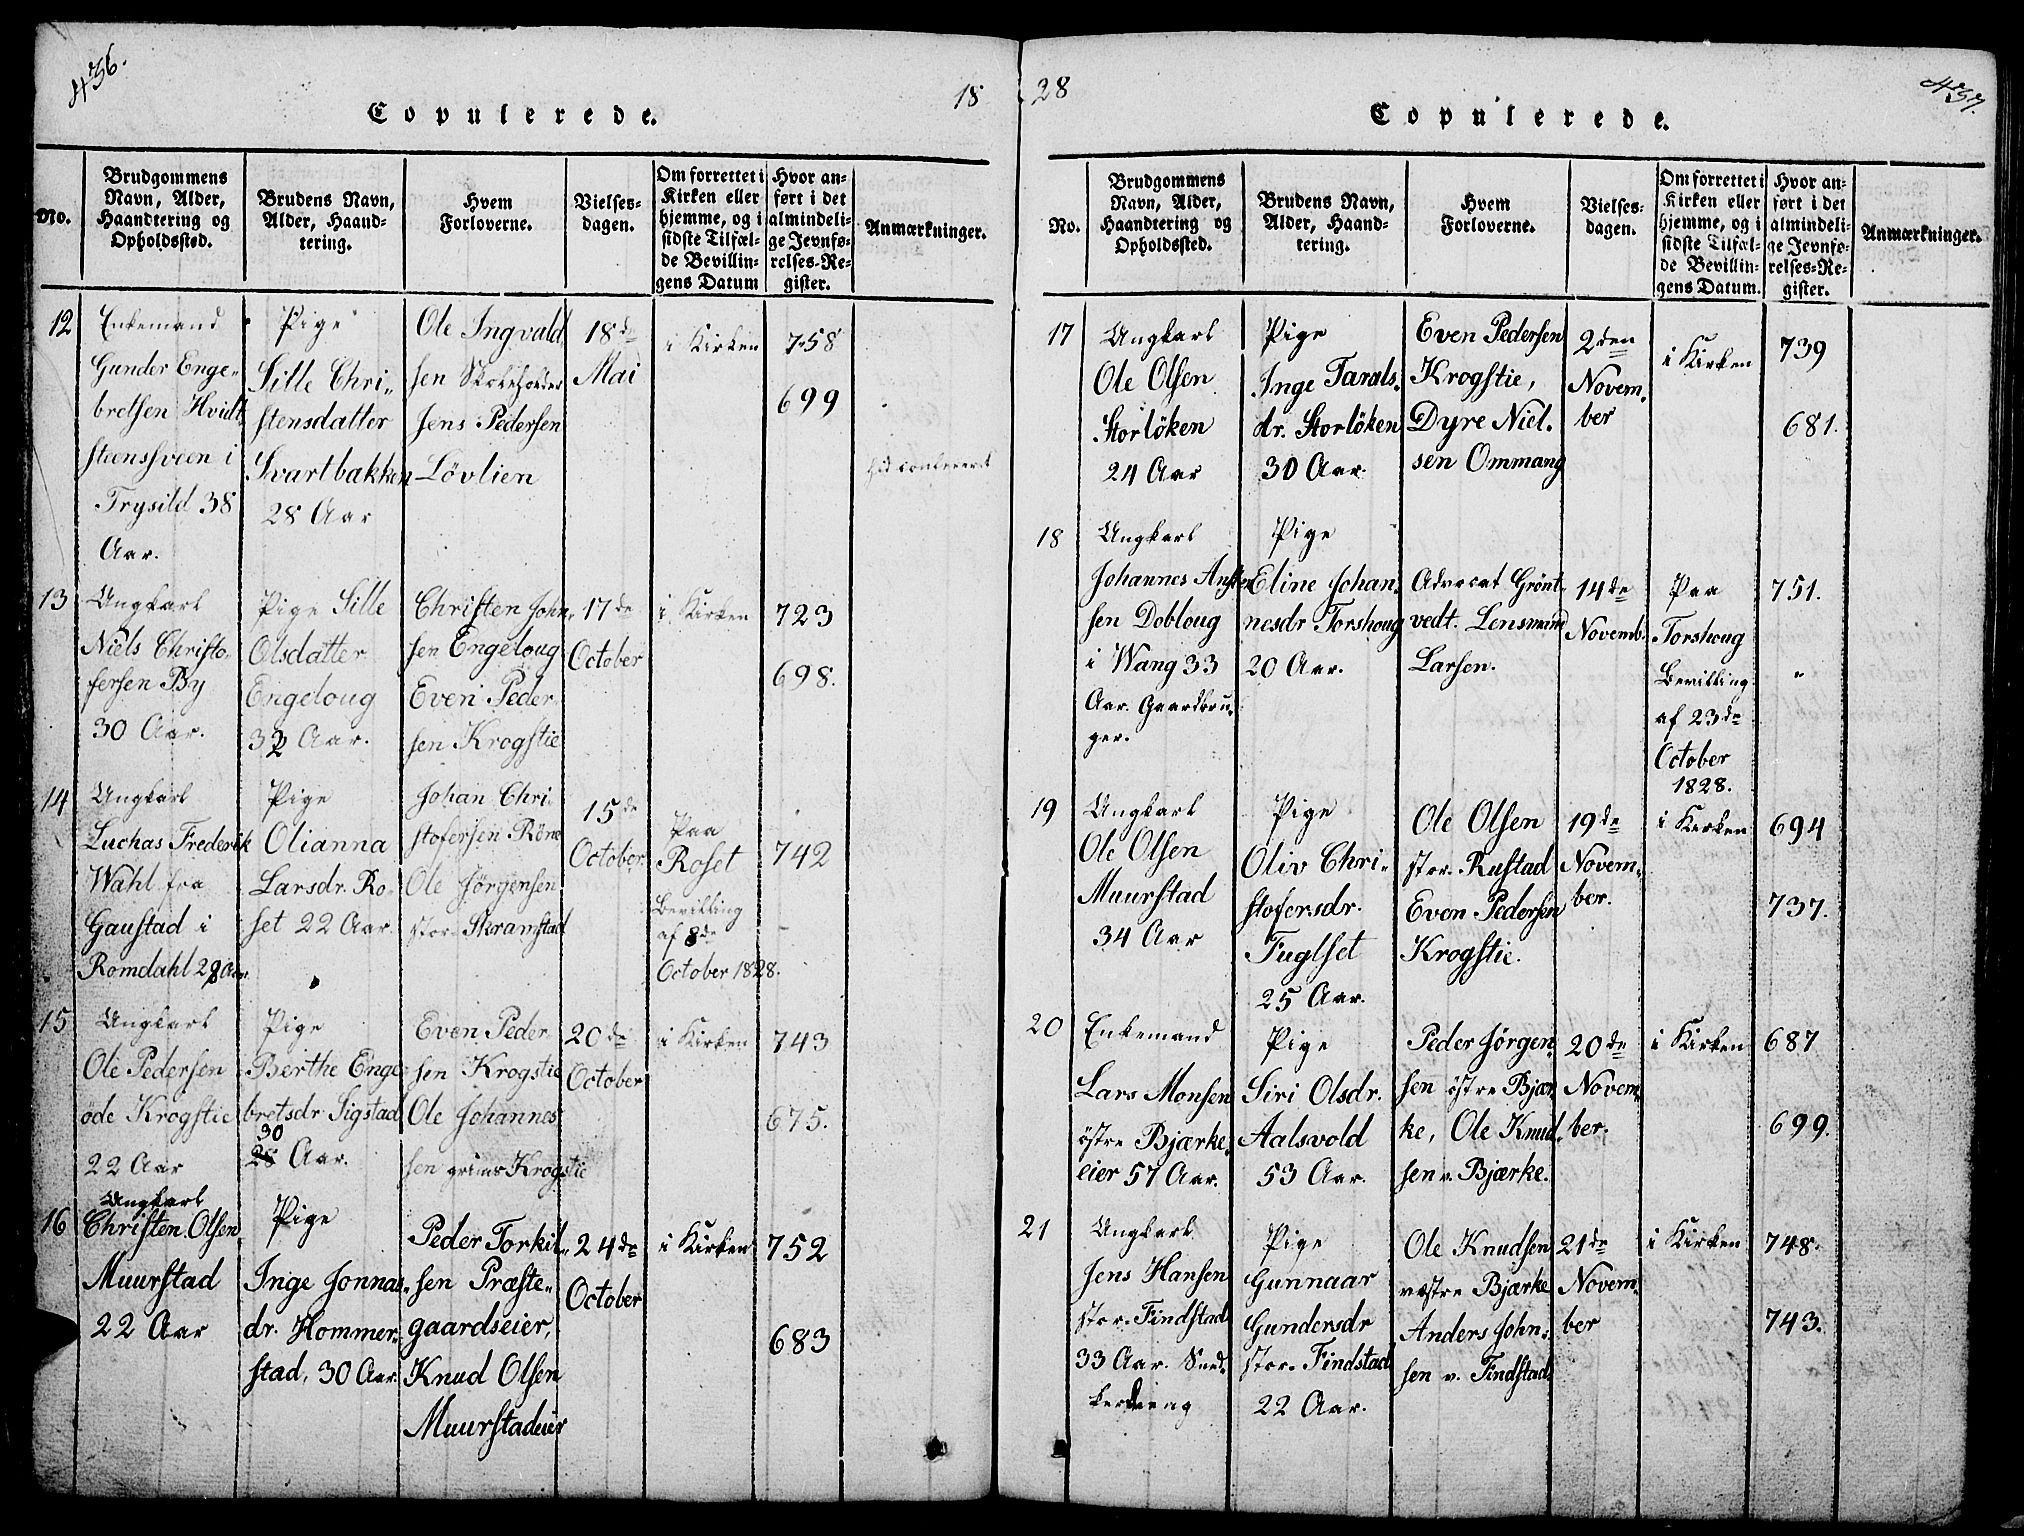 436.
Copulerede.
18
No.
Brudgommens Navn, Alder, Haandtering og Opholdssted.
Brudens Navn, Alder, Haandtering.
Hvem Forloverne.
Vielsesdagen.
Om forrettet i Kirken eller hjemme, og i sidste Tilfælde Bevillingens Datum
Hvor anført i det almindelige Jevnførelses-Register.
Anmærkninger.
12
Enkemand
Gunder Enge-
bretsen Hvidt-
steensveen i
Trysild 38
Aar.
Pige
Sille Chri-
stensdatter
Svartbakken
28 Aar
Ole Ingvald
sen Skoleholder
Jens Pedersen
Løvlien
18de
Mai
i Kirken
758
699
13
Ungkarl
Niels Christo-
fersen By
30 Aar.
Pige Sille
Olsdatter
Engeloug
32 Aar.
Christen John-
sen Engeloug
Even Peder-
sen Krogstie
17de
October
i Kirken
723
698.
14
Ungkarl
Luchas Frederik
Wahl fra
Gaustad i
Romdahl 28 Aar.
Pige
Olianna
Larsdr. Ro-
set 22 Aar.
Johan Chri-
stofersen Röne
Ole Jørgensen
stor. Skramstad
15de
October.
Paa
Roset
Bevilling
af 8de
October 1828.
742
15
Ungkarl
Ole Pedersen
øde Krogstie
22 Aar
Pige
Berthe Enge
bretsdr Sigstad
30
28 Aar.
Even Peder
sen Krogstie
Ole Johannes
sen grims Krogstie
20de
October
i Kirken
743
675.
16
Ungkarl
Christen Olsen
Muurstad
22 Aar
Pige
Inge Jonnas-
dr. Hommer-
stad, 30 Aar.
Peder Torkil-
sen Præste-
gaardseier,
Knud Olsen
Muurstadeier
24de
October
i Kirken
752
683
28
Copulerede.
437.
No.
Brudgommens Navn, Alder, Haandtering og Opholdssted.
Brudens Navn, Alder, Haandtering.
Hvem Forloverne.
Vielsesdagen.
Om forrettet i Kirken eller hjemme, og i sidste Tilfælde Bevillingens Datum.
Hvor anført i det almindelige Jevnførelses-Register.
Anmærkninger.
17
Ungkarl
Ole Olsen
Storlöken
24 Aar
Pige
Inge Tarals-
dr. Storlöken
30 Aar.
Even Pedersen
Krogstie,
Dyre Niel-
sen Ommang
2den
Novem-
ber
i Kirken
739
681.
18
Ungkarl
Johannes Ansten
sen Dobloug
i Wang 33
Aar. Gaardbru-
ger.
Pige
Eline Johan-
nesdr Torshoug
20 Aar.
Advocat Grønt-
vedt. Lensmand
Larsen.
14de
Novemb.
Paa
Torshoug
Bevilling
af 23de
October
1828.
751.
"
19
Ungkarl
Ole Olsen
Muurstad
34 Aar
Pige
Oliv Chri-
stofersdr.
Fuglset
25 Aar.
Ole Olsen
stor. Rustad
Even Pedersen
Krogstie.
19de
Novem-
ber.
i Kirken
694
737.
20
Enkemand
Lars Monsen
östre Bjærke-
eier 57 Aar.
Pige
Siri Olsdr.
Aalsvold
53 Aar.
Peder Jörgen-
sen östre Bjær-
ke, Ole Knud-
sen v. Bjærke.
20de
Novem-
ber.
i Kirken
687
699.
21
Ungkarl
Jens Hansen
stor. Findstad
33 Aar. Sned-
Pige
Gunnaar
Gundersdr
stor. Findstad
22 Aar.
Ole Knudsen
vestre Bjærke
Anders John-
sen v. Findstad.
21de
Novem-
ber
i Kirken
748.
743.